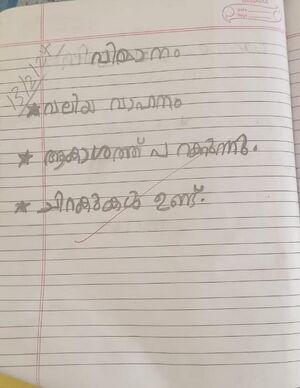 വിമാനം
★ വലിയ വാഹനം
★ ആകാശത്ത് പറക്കുന്നു.
★ ചിറകുകൾ ഉണ്ട്.